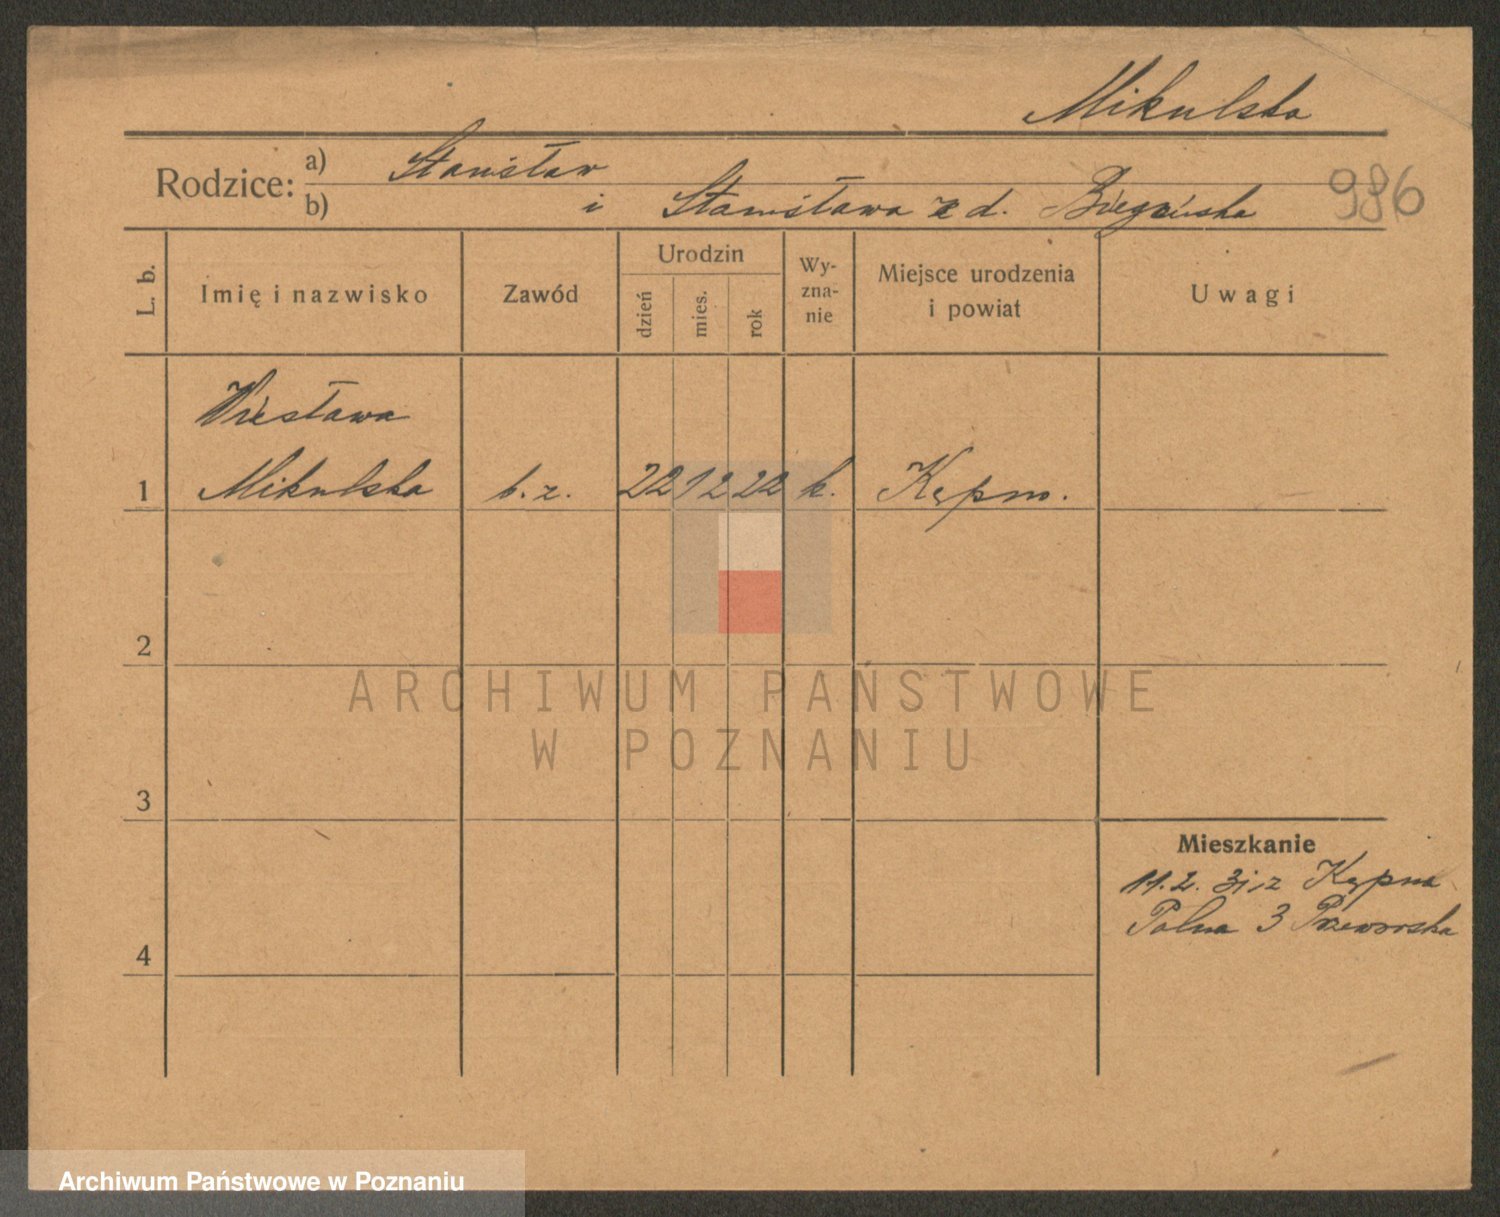 Mikulska
Rodzice: a) Stanisław
b) i Stanisława z d. Biegańska
986
L. b.
Imię i nazwisko
Zawód
Urodzin
dzień
mies.
rok
Wy-
zna-
nie
Miejsce urodzenia
i powiat
Uwagi
Wiesława
1 Mikulska b. z. 22 12 22 k. Kępno.
2
3
4
Mieszkanie
11.2. 31 z Kępna
Polna 3 Przeworska
ARCHIWUM PAŃSTWOWE
W POZNANIU
Archiwum Państwowe w Poznaniu